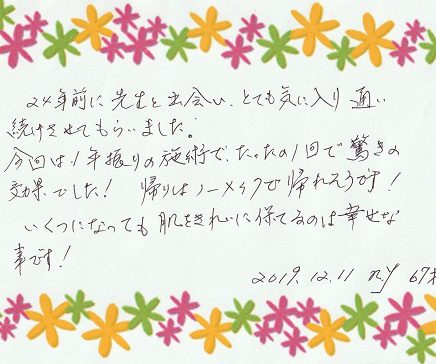 24年前に先生と出会い、とても気に入り通い
続けさせてもらいました。
今回は1年振りの施術で、たったの1回で驚きの
効果でした！ 帰りはノーメイクで帰れそうです！
いくつになっても肌をきれいに保てるのは幸せな
事です！
2019.12.11 n.y 67才